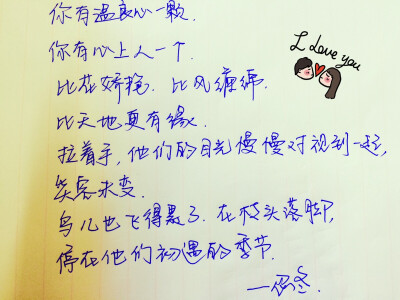 你有温良心一颗.
你有心上人一个.
I Love you
比花娇艳. 比风缠绵.
比天地更有缘.
拉着手,他们的目光慢慢对视到一起,
笑容未变.
鸟儿也飞得累了.在枝头落脚,
停在他们初遇的季节.